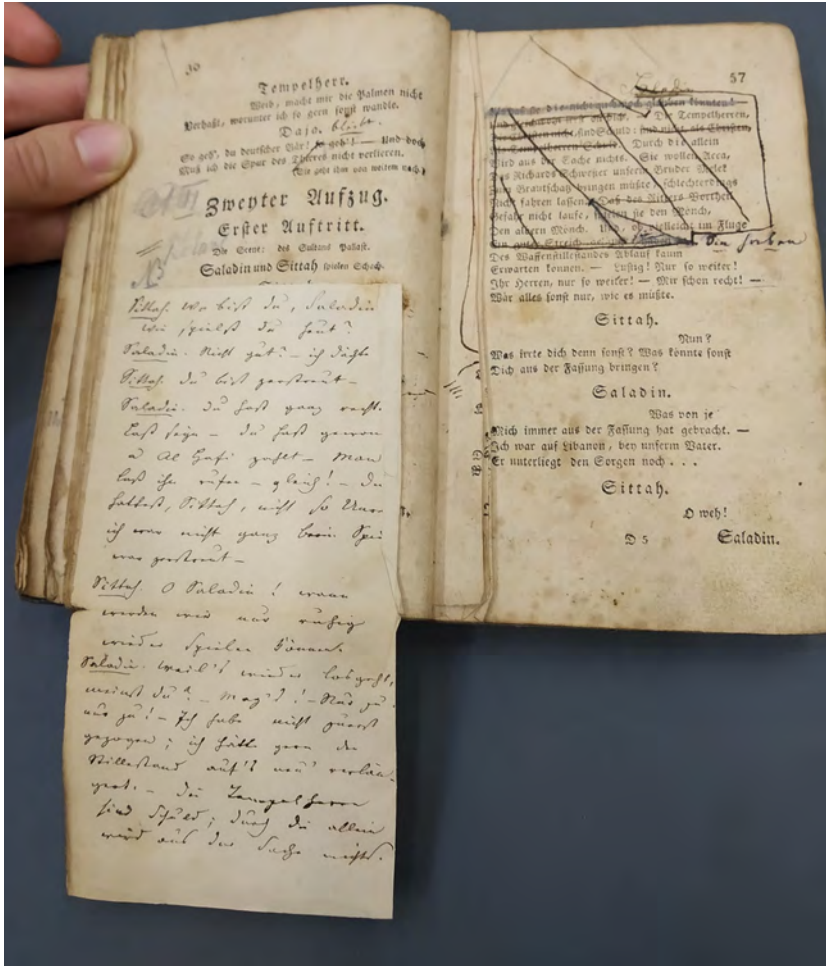 30
Tempelherr.
Weib, macht mir die Palmen nicht
Verhaßt, worunter ich so gern sonst wandle.
Daja. bleibt.
So geh', du deutscher Bär! so geh'! — Und doch
Muß ich die Spur des Thieres nicht verlieren.
(Sie geht ihm von weitem nach.)
Zweyter Aufzug.
Erster Auftritt.
Die Scene: des Sultans Pallast.
Saladin und Sittah spielen Schach.
Sittah. Wo bist du, Saladin
wie spielst du heut?
Saladin. Nicht gut? – ich dächte
Sittah. du bist zerstreut –
Saladin. du hast ganz recht.
Laß seyn – du hast gewon
Al Hafi zahlt – Man
laß ihn rufen – gleich! – du
hattest, Sittah, nicht so Unre
ich war nicht ganz beim Spie
war zerstreut –
Sittah. O Saladin! wann
werden wir nur ruhig
wieder spielen können.
Saladin. Weil's wieder losgeht,
meinst du? – Mag's! – Nur zu
nur zu! – Ich habe nicht zuerst
gezogen; ich hätte gern den
Stillestand auf's neu' verlän-
gert. – die Tempelherrn
sind Schuld; durch die allein
wird aus der Sache nichts.
57
Saladin
Die Tempelherren,
Die Christen nicht, sind Schuld: sind nicht, als Christen,
Als Tempelherren Schuld. Durch die allein
Wird aus der Sache nichts. Sie wollen Acca,
Das Richards Schwester unserm Bruder Melek
Zum Brautschatz bringen müßte, schlechterdings
Nicht fahren lassen. Daß des Ritters Vortheil
Gefahr nicht laufe, spielen sie den Mönch,
Den albern Mönch. Und, ob vielleicht im Fluge
Ein guter Streich
Des Waffenstillestandes Ablauf kaum
Erwarten können. — Lustig! Nur so weiter!
Ihr Herren, nur so weiter! — Mir schon recht! —
Wär alles sonst nur, wie es müßte.
Sittah.
Nun?
Was irrte dich denn sonst? Was könnte sonst
Dich aus der Fassung bringen?
Saladin.
Was von je
Mich immer aus der Fassung hat gebracht. —
Ich war auf Libanon, bey unserm Vater.
Er unterliegt den Sorgen noch . . .
Sittah.
O weh!
D 5 Saladin.